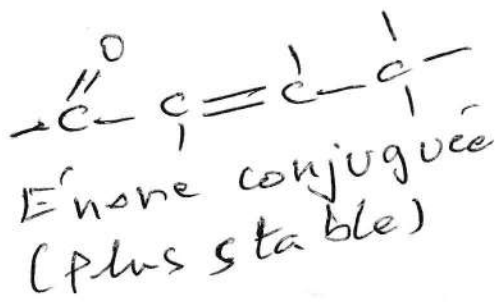 O
C C = C C
Énone conjuguée
(plus stable)